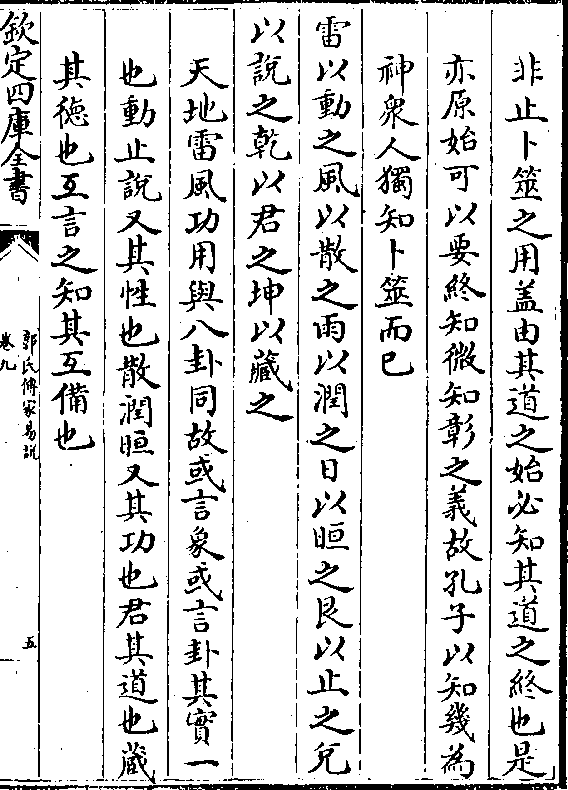 非止卜筮之用盖由其道之始必知其道之終也是
亦原始可以要終知微知彰之義故孔子以知幾為
神衆人獨知卜筮而已
雷以動之風以散之雨以潤之日以晅之艮以止之兌
以說之乾以君之坤以藏之
天地雷風功用與八卦同故或言象或言卦其實一
也動止說又其性也散潤晅又其功也君其道也蔵
其徳也互言之知其互備也
欽定四庫全書
郭氏傳家易說
卷九
五